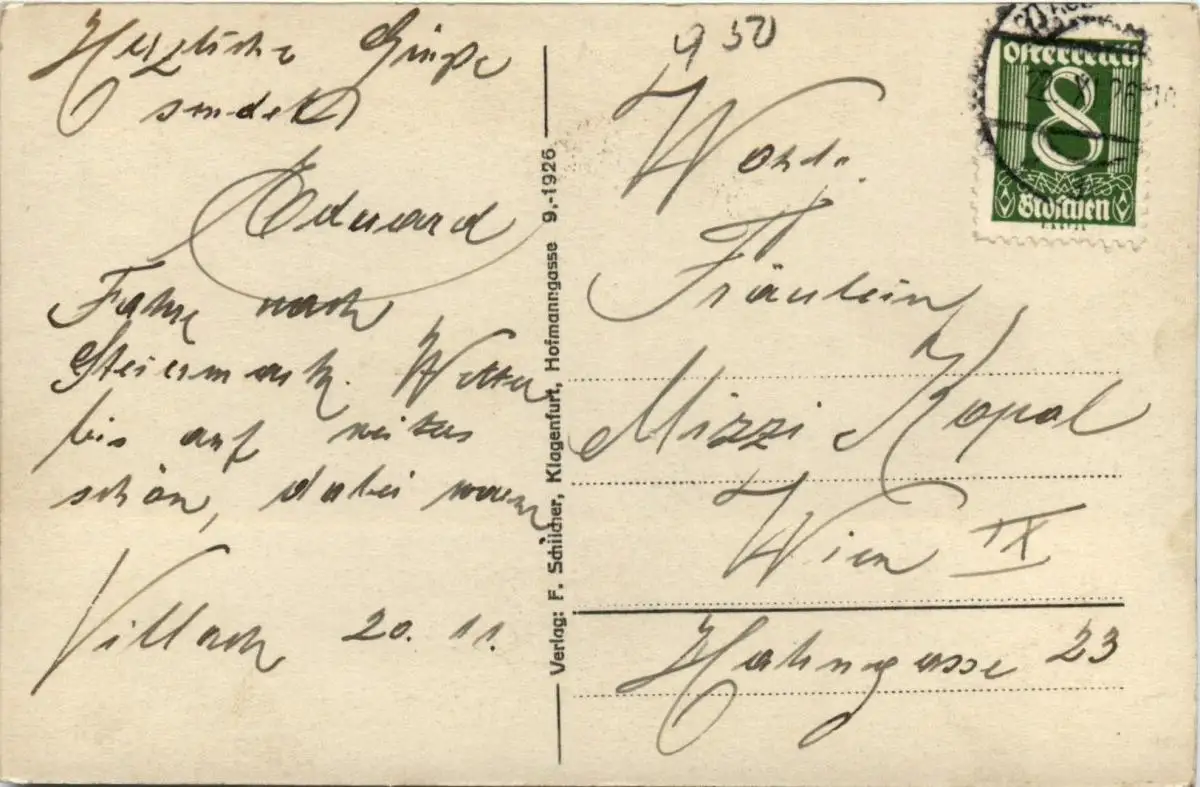 Herzliche Grüße
sendet
Eduard
Fahre nach
Steiermark. Wetter
bis auf weiteres
schön, dabei warm
Villach 20. 11.
Verlag: F. Schilcher, Klagenfurt, Hofmanngasse 9.-1926
950
Österreich
8
Groschen
22 XI 26
Fräulein
Mizzi Kopal
Wien IX
Hahngasse 23